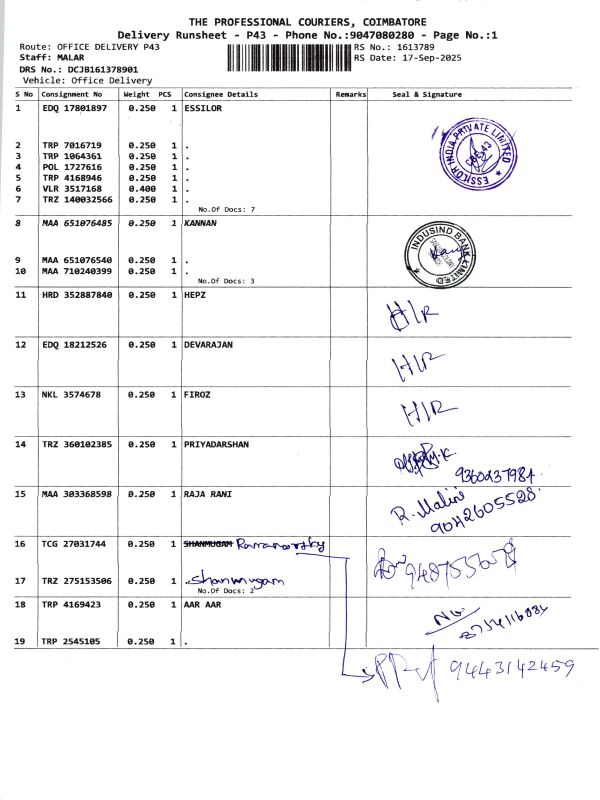 THE PROFESSIONAL COURIERS, COIMBATORE
Delivery Runsheet - P43 - Phone No.:9047080280 - Page No.:1
Route: OFFICE DELIVERY P43 RS No.: 1613789
Staff: MALAR RS Date: 17-Sep-2025
DRS No.: DCJB161378901
Vehicle: Office Delivery
S No Consignment No Weight PCS Consignee Details Remarks Seal & Signature
1 EDQ 17801897 0.250 1 ESSILOR
ESSILOR INDIA PRIVATE LIMITED
CBE-43
2 TRP 7016719 0.250 1 .
3 TRP 1064361 0.250 1 .
4 POL 1727616 0.250 1 .
5 TRP 4168946 0.250 1 .
6 VLR 3517168 0.400 1 .
7 TRZ 140032566 0.250 1 .
No.Of Docs: 7
8 MAA 651076485 0.250 1 KANNAN
INDUSIND BANK LIMITED
9 MAA 651076540 0.250 1 .
10 MAA 710240399 0.250 1 .
No.Of Docs: 3
11 HRD 352887840 0.250 1 HEPZ
H/R
12 EDQ 18212526 0.250 1 DEVARAJAN
H/R
13 NKL 3574678 0.250 1 FIROZ
H/R
14 TRZ 360102385 0.250 1 PRIYADARSHAN
9360237981
15 MAA 303368598 0.250 1 RAJA RANI
R. Malini
9042605528
16 TCG 27031744 0.250 1 SHANMUGAM Ramamoorthy
17 TRZ 275153506 0.250 1 . Shanmugam
No.Of Docs: 2
18 TRP 4169423 0.250 1 AAR AAR
19 TRP 2545105 0.250 1 .
9443142459